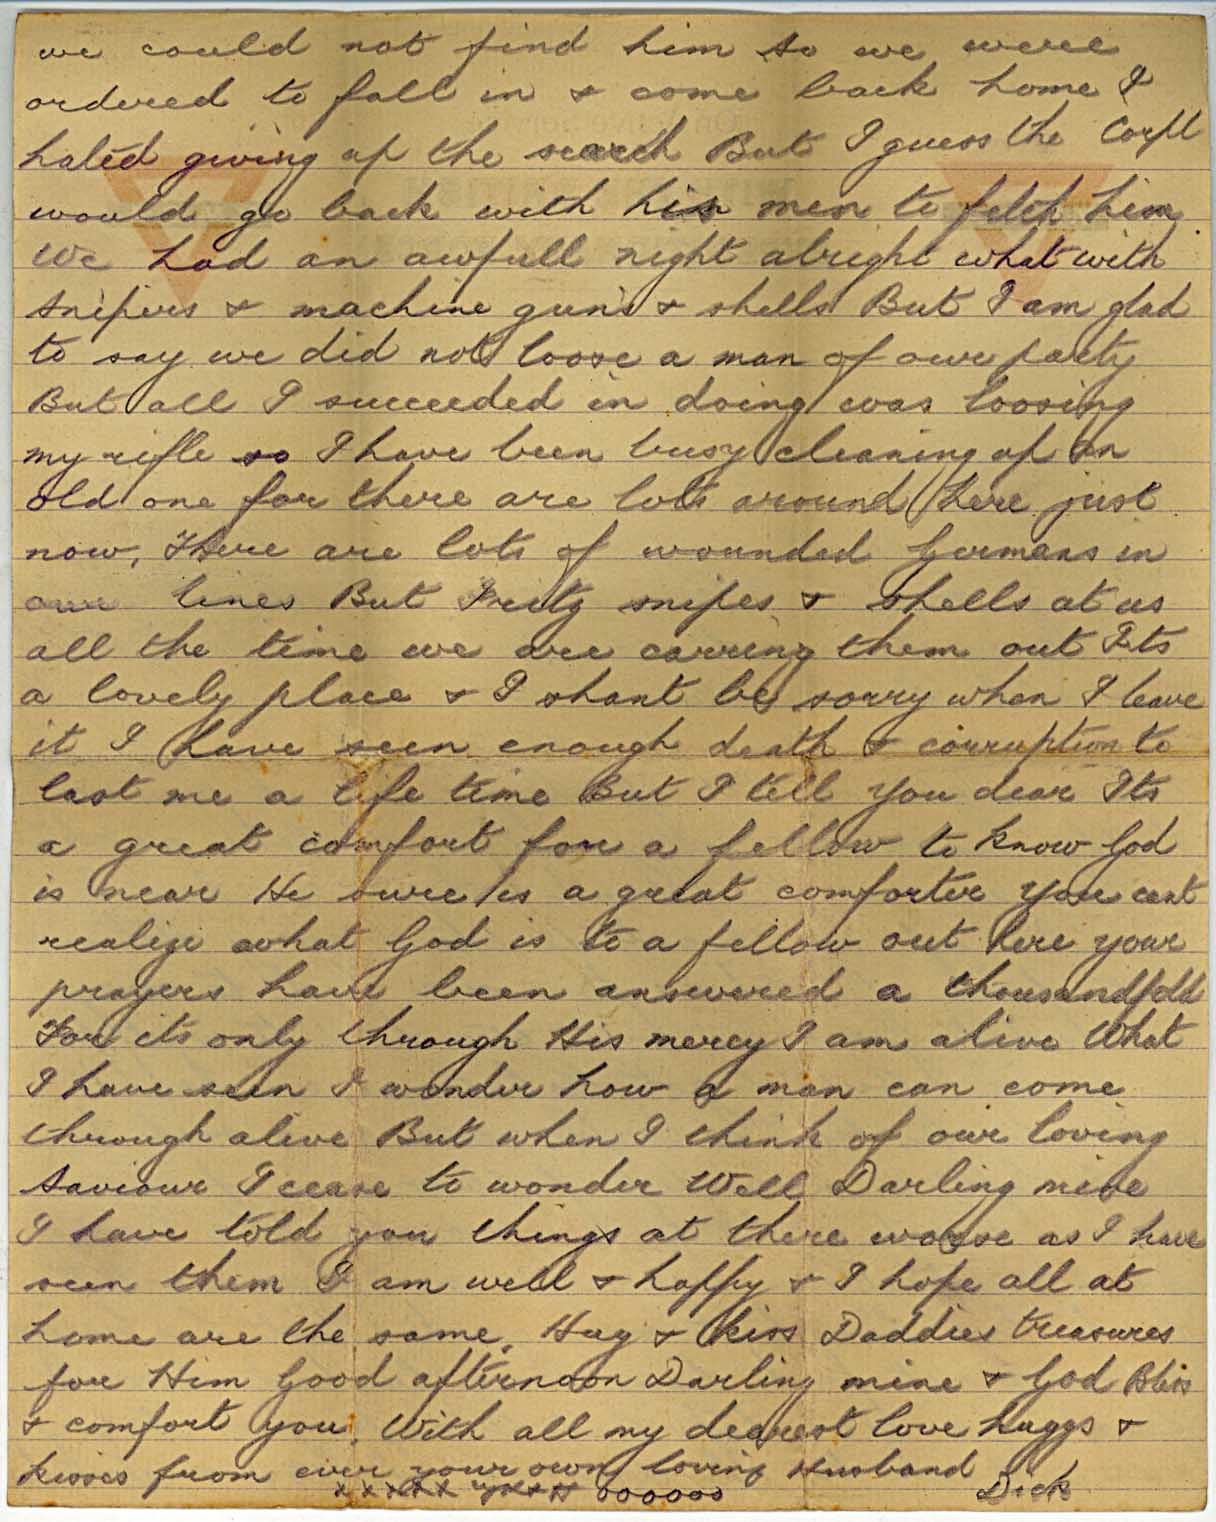 we could not find him so we were
ordered to fall in & come back home I
hated giving up the search But I guess the Corpl
would go back with his men to fetch him
We had an awfull night alright what with
snipers & machine guns & shells But I am glad
to say we did not loose a man of our party
But all I succeeded in doing was loosing
my rifle so I have been busy cleaning up an
old one for there are lots around here just
now, There are lots of wounded Germans in
our lines But Fritz snipes & shells at us
all the time we are carring them out Its
a lovely place & I shant be sorry when I leave
it I have seen enough death & corruption to
last me a life time But I tell you dear Its
a great comfort for a fellow to know God
is near He sure is a great comforter you cant
realize what God is to a fellow out here your
prayers have been answered a thousandfold
For its only through His mercy I am alive What
I have seen I wonder how a man can come
through alive But when I think of our loving
Saviour I cease to wonder Well Darling mine
I have told you things at there worse as I have
seen them I am well & happy & I hope all at
home are the same. Hug & kiss Daddies treasures
for Him Good afternoon Darling mine & God Bless
& comfort you. With all my dearest love huggs &
kisses from ever your own loving Husband
Dick